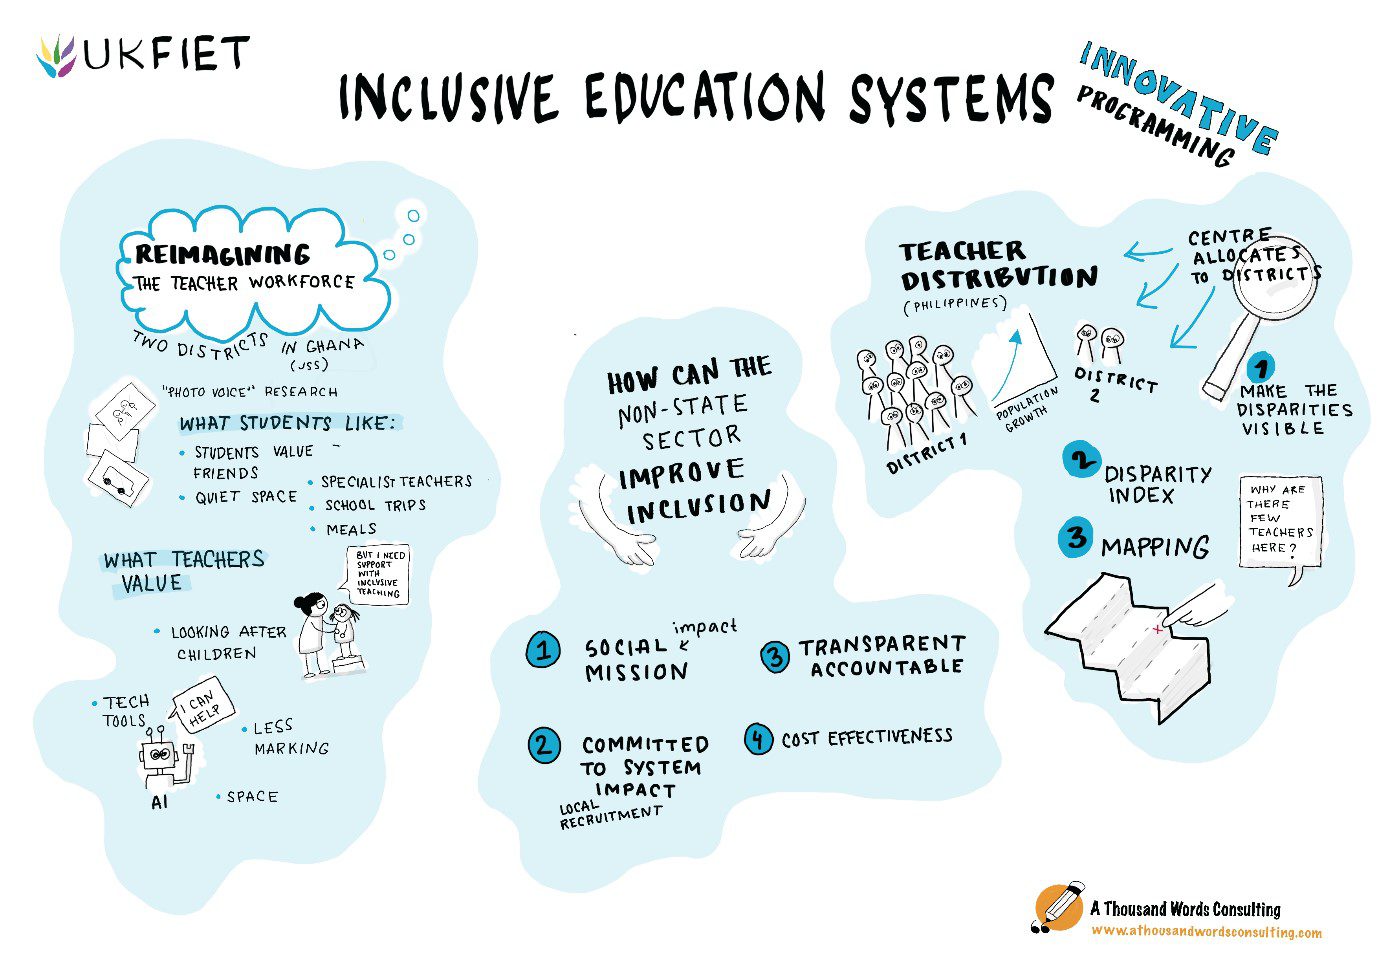 UKFIET
INCLUSIVE EDUCATION SYSTEMS
INNOVATIVE
PROGRAMMING
REIMAGINING
THE TEACHER WORKFORCE
TWO DISTRICTS IN GHANA
(JSS)
"PHOTO VOICE" RESEARCH
WHAT STUDENTS LIKE:
• STUDENTS VALUE –
FRIENDS
• QUIET SPACE
• SPECIALIST TEACHERS
• SCHOOL TRIPS
• MEALS
WHAT TEACHERS
VALUE
BUT I NEED
SUPPORT
WITH
INCLUSIVE
TEACHING
• LOOKING AFTER
CHILDREN
• TECH
TOOLS
I CAN
HELP
• LESS
MARKING
AI
• SPACE
HOW CAN THE
NON-STATE
SECTOR
IMPROVE
INCLUSION
1 SOCIAL impact
MISSION
2 COMMITTED
TO SYSTEM
IMPACT
LOCAL
RECRUITMENT
3 TRANSPARENT
ACCOUNTABLE
4 COST EFFECTIVENESS
TEACHER
DISTRIBUTION
(PHILIPPINES)
CENTRE
ALLOCATES
TO DISTRICTS
DISTRICT 1
POPULATION
GROWTH
DISTRICT
2
1
MAKE THE
DISPARITIES
VISIBLE
2 DISPARITY
INDEX
3 MAPPING
WHY ARE
THERE
FEW
TEACHERS
HERE?
A Thousand Words Consulting
www.athousandwordsconsulting.com